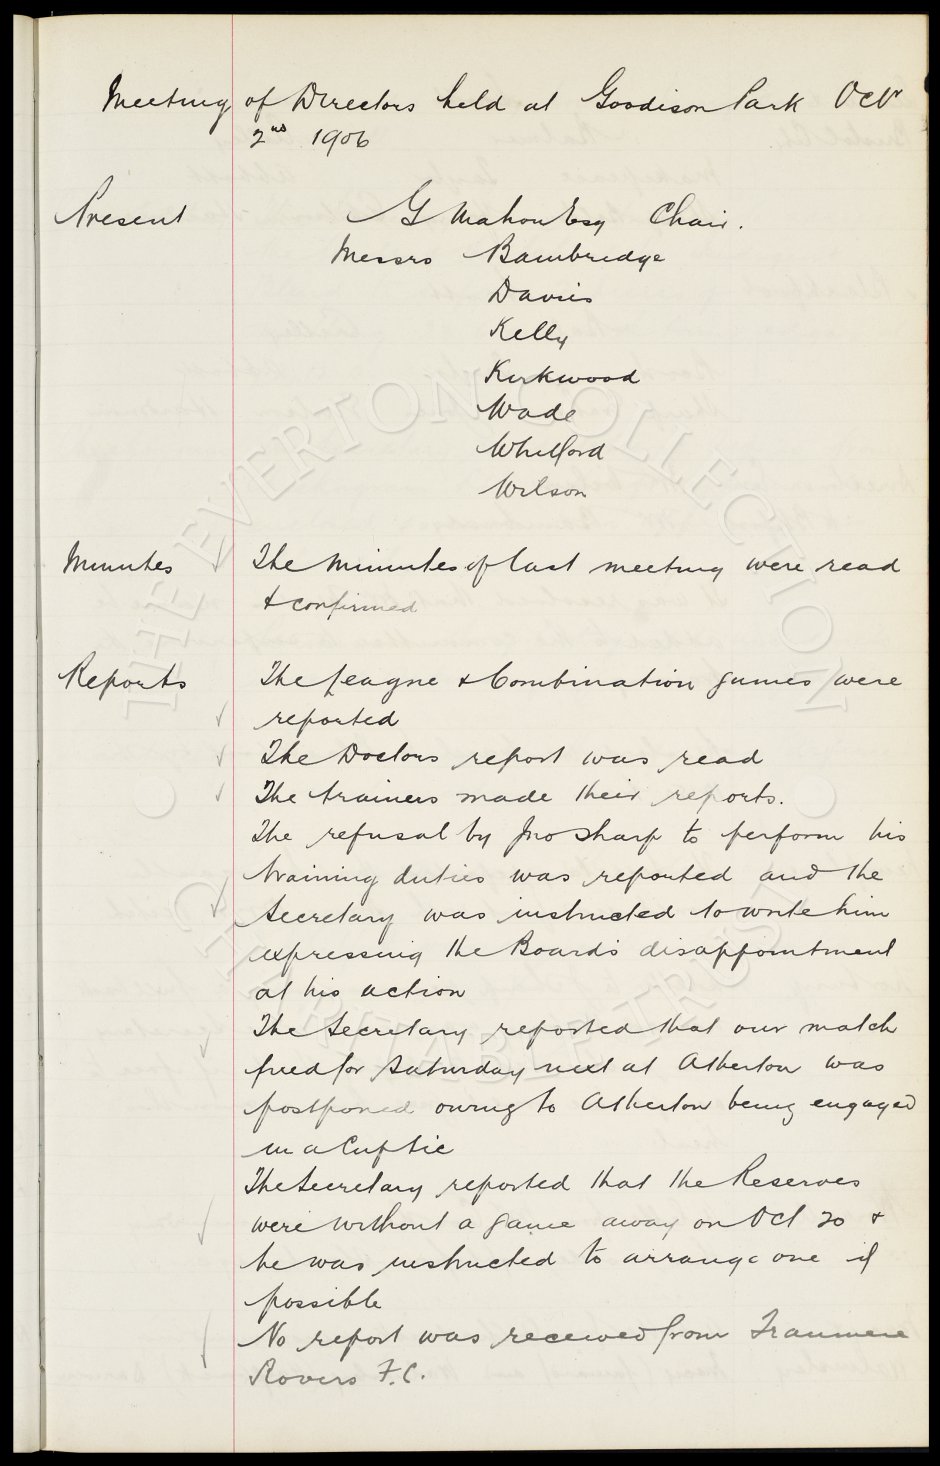 Meeting of Directors held at Goodison Park Octr
2nd 1906
Present G Mahon Esq Chair.
Messrs Bainbridge
Davies
Kelly
Kirkwood
Wade
Whitford
Wilson
Minutes The Minutes of last meeting were read
& confirmed
Reports The League & Combination games were
reported
The Doctors report was read
The trainers made their reports.
The refusal by Jno Sharp to perform his
training duties was reported and the
Secretary was instructed to write him
expressing the Board's disappointment
at his action
The Secretary reported that our match
fixed for Saturday next at Atherton was
postponed owing to Atherton being engaged
in a Cup tie
The Secretary reported that the Reserves
were without a game away on Oct 20 &
he was instructed to arrange one if
possible
No report was received from Tranmere
Rovers F.C.
THE EVERTON COLLECTION
CHARITABLE TRUST